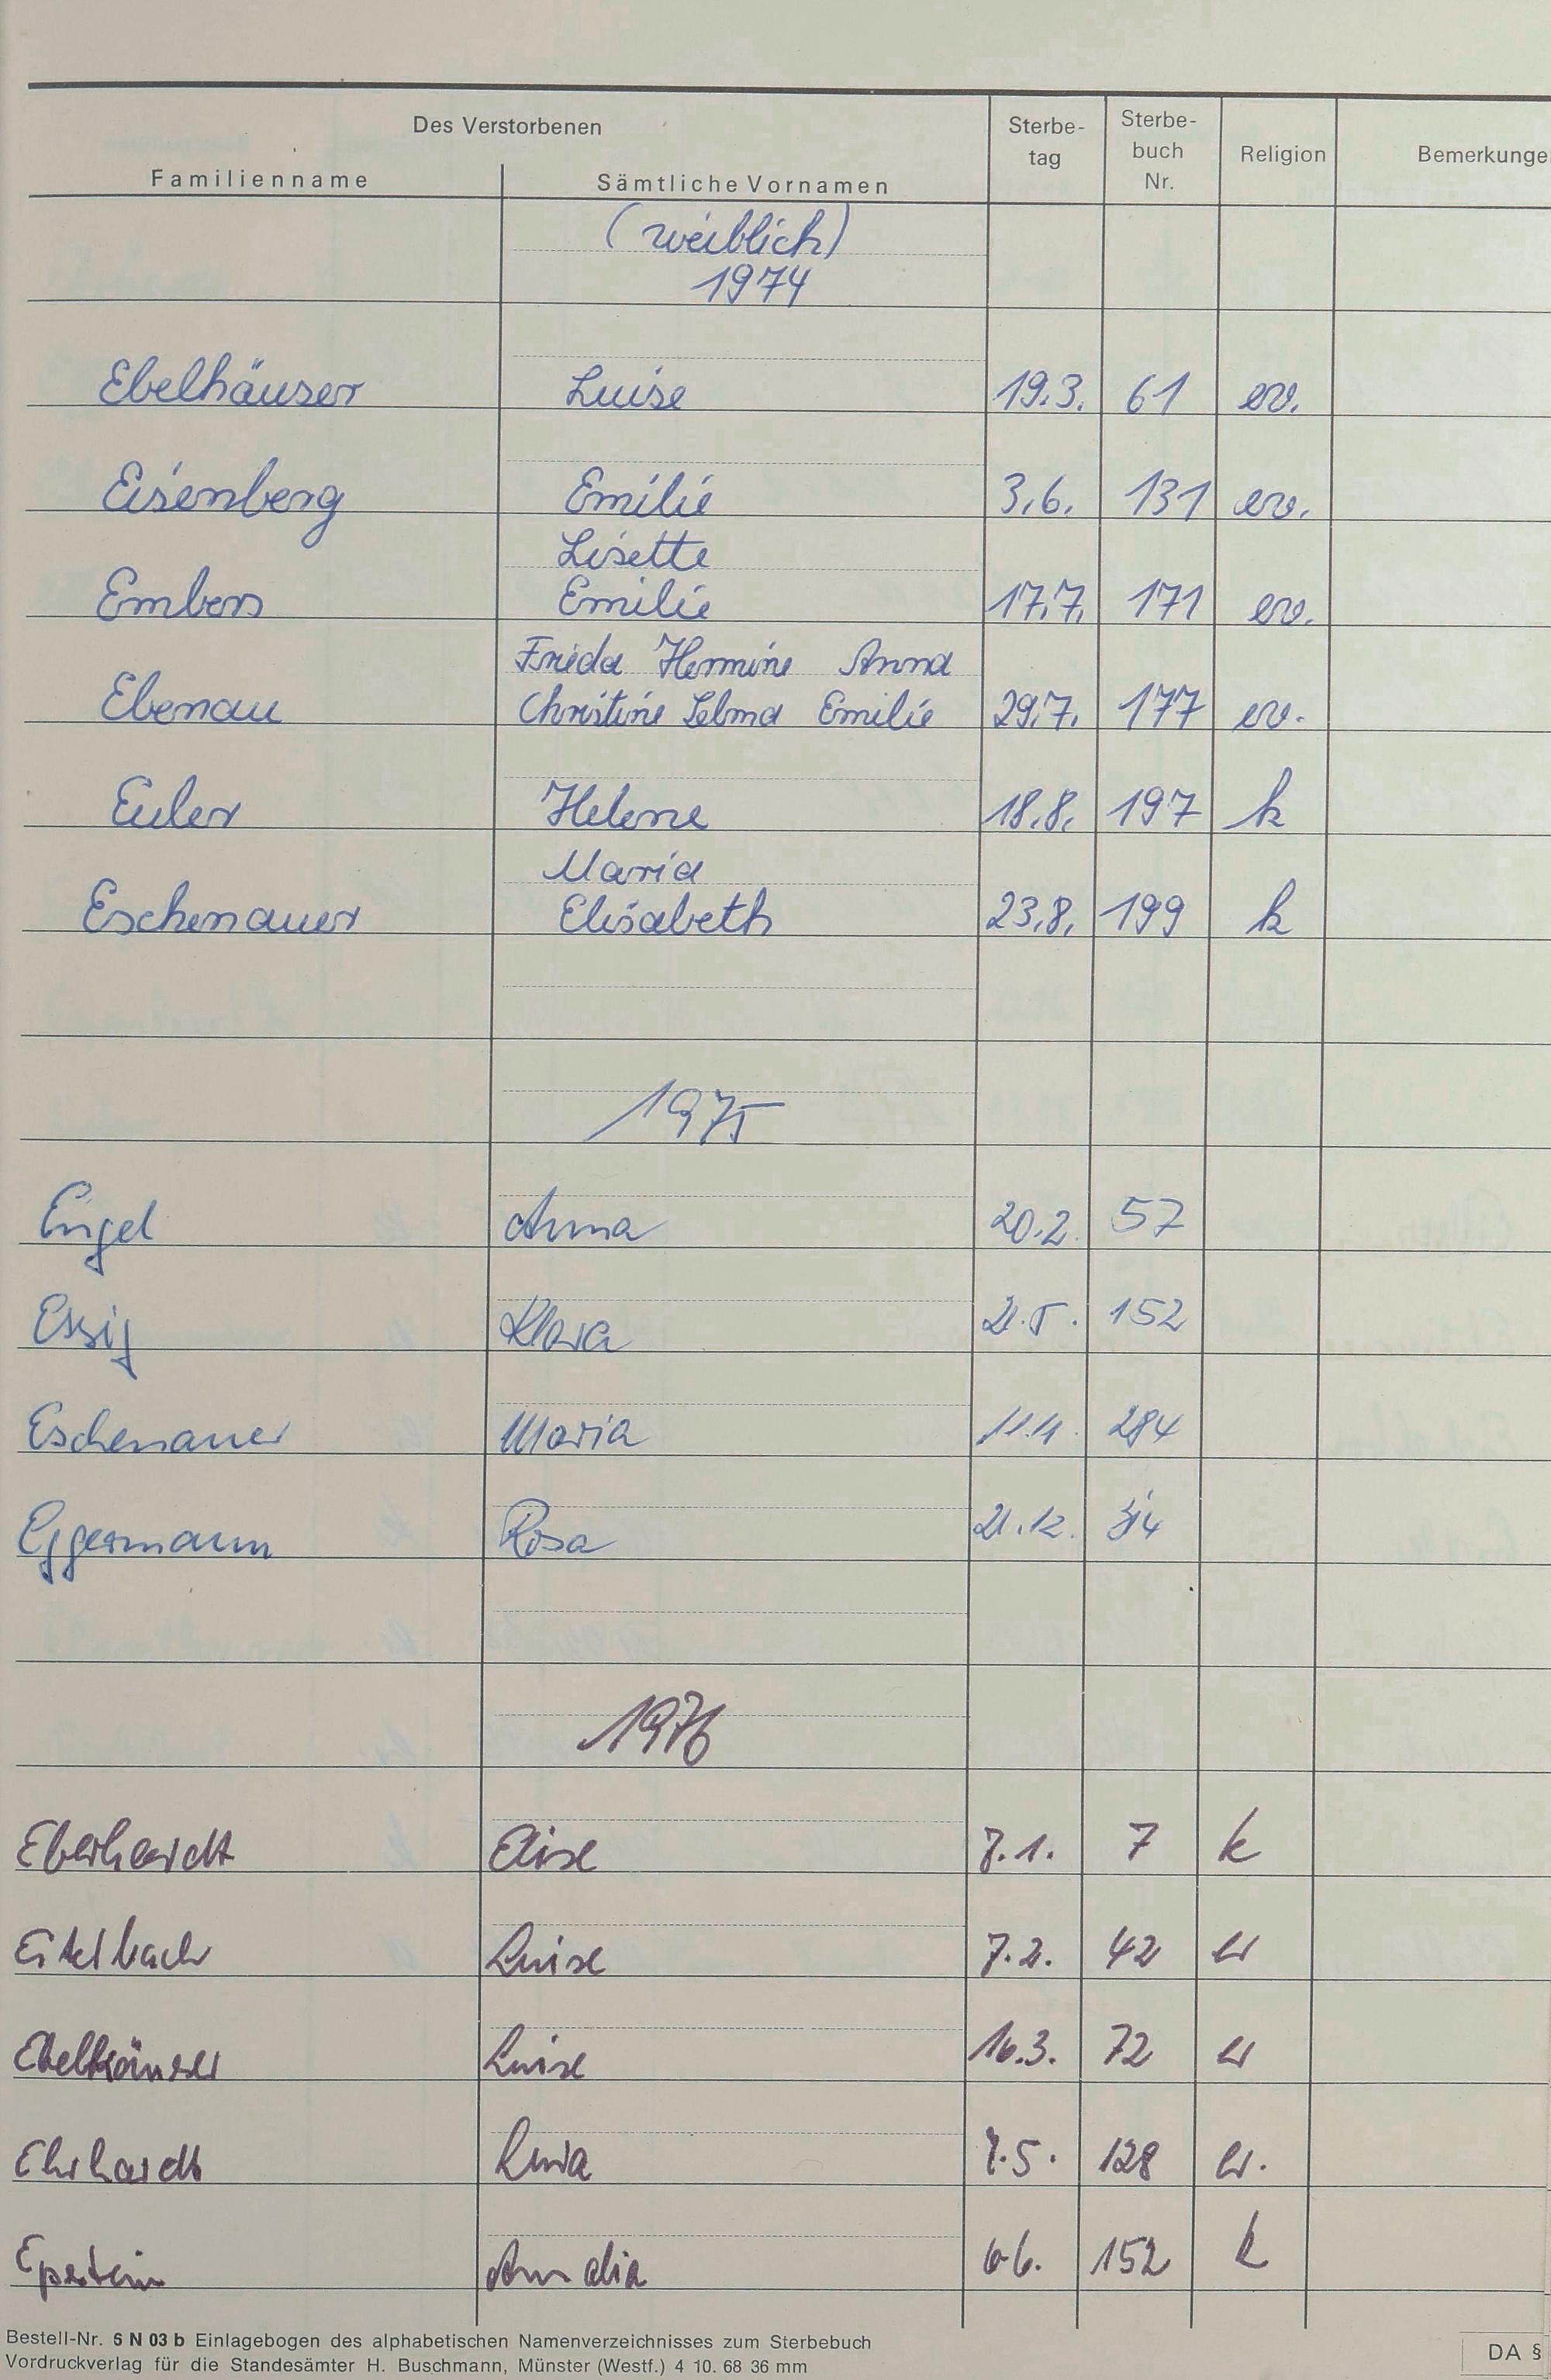 Des Verstorbenen
Familienname Sämtliche Vornamen Sterbe-tag Sterbe-buch Nr. Religion Bemerkunge
(weiblich)
1974
Ebelhäuser Luise 19.3. 61 ev.
Eisenberg Emilie 3.6. 131 ev.
Lisette
Embers Emilie 17.7. 171 ev.
Frieda Hermine Anna
Ebenau Christine Selma Emilie 29.7. 177 ev.
Euler Helene 18.8. 197 k
Maria
Eschenauer Elisabeth 23.8. 199 k
1975
Engel Anna 20.2. 57
Essig Klara 21.5. 152
Eschenauer Maria 11.11. 284
Eggermann Rosa 21.12.
1976
Eberhardt Elise 7.1. 7 k
Eitelbach Luise 7.2. 42 ev
Ebelhäuser Luise 16.3. 72 ev
Ehrhardt 7.5. 128 ev.
Epstein Amalia 6.6. 152 k
Bestell-Nr. 6 N 03 b Einlagebogen des alphabetischen Namenverzeichnisses zum Sterbebuch
Vordruckverlag für die Standesämter H. Buschmann, Münster (Westf.) 4 10. 68 36 mm
DA §